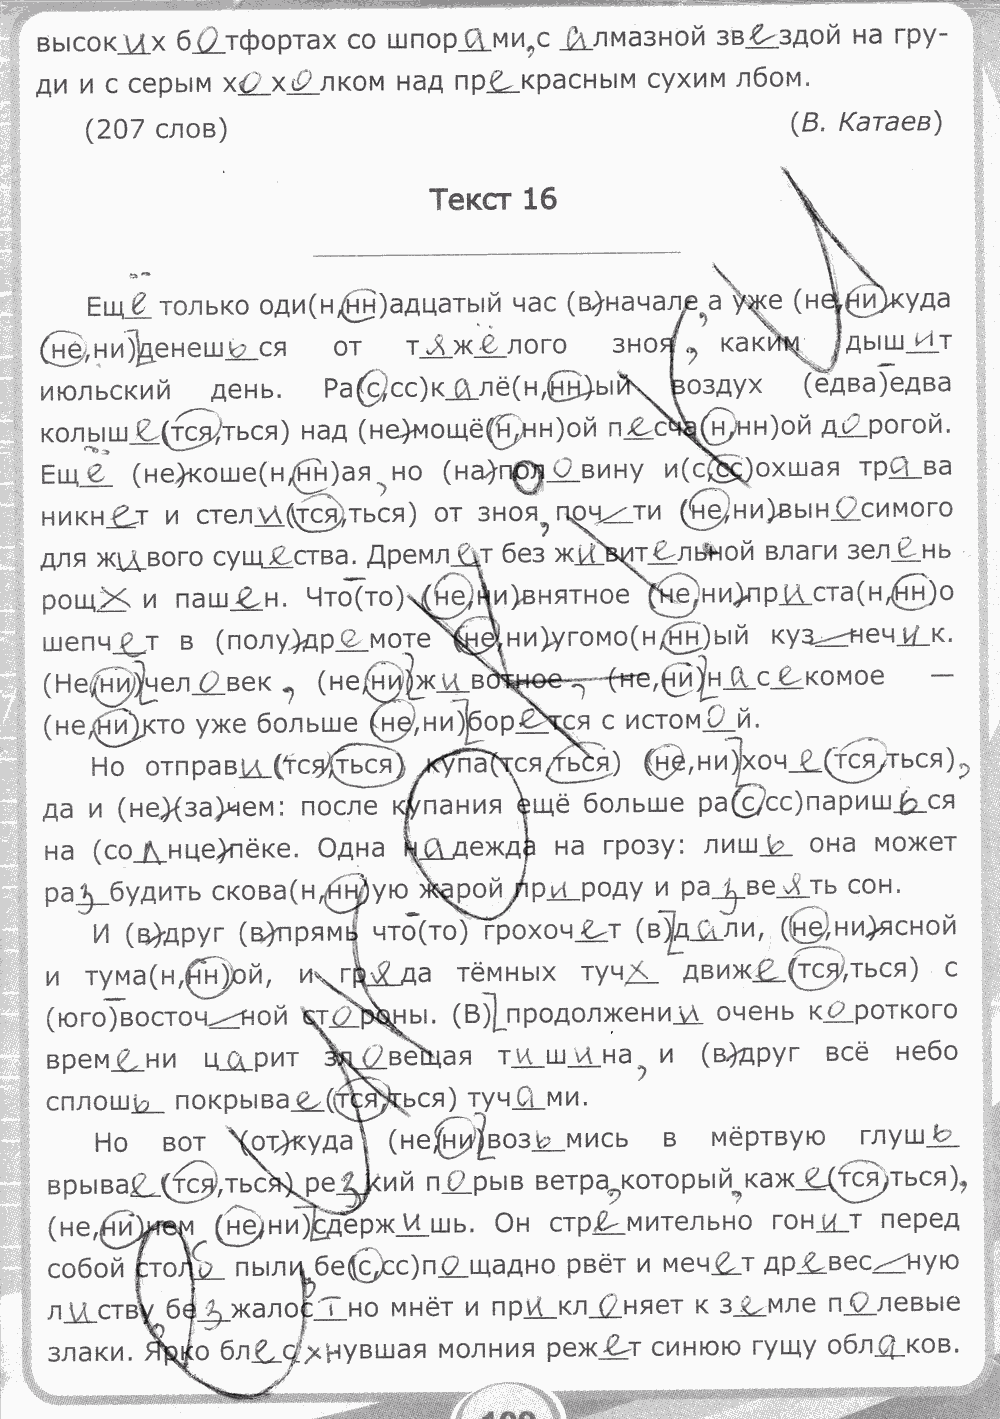 высоких ботфортах со шпорами, с алмазной звездой на гру-
ди и с серым хохолком над прекрасным сухим лбом.
(207 слов)
(В. Катаев)
Текст 16
Ещё только оди(н,нн)адцатый час (в)начале, а уже (не,ни)куда
(не,ни)денешься от тяжёлого зноя, каким дышит
июльский день. Ра(с,сс)калё(н,нн)ый воздух (едва)едва
колыше(тся,ться) над (не)мощё(н,нн)ой песча(н,нн)ой дорогой.
Ещё (не)коше(н,нн)ая, но (на)половину и(с,сс)охшая трава
никнет и стели(тся,ться) от зноя, почти (не,ни)выносимого
для живого существа. Дремлет без живительной влаги зелень
рощ и пашен. Что(то) (не,ни)внятное (не,ни)приста(н,нн)о
шепчет в (полу)дремоте (не,ни)угомо(н,нн)ый кузнечик.
(Не,ни)человек, (не,ни)животное, (не,ни)насекомое —
(не,ни)кто уже больше (не,ни)борется с истомой.
Но отправи(тся,ться) купа(тся,ться) (не,ни)хоче(тся,ться),
да и (не)(за)чем: после купания ещё больше ра(с,сс)паришься
на (со)лнцепёке. Одна надежда на грозу: лишь она может
разбудить скова(н,нн)ую жарой природу и развеять сон.
И (в)друг (в)прямь что(то) грохочет (в)дали, (не,ни)ясной
и тума(н,нн)ой, и гряда тёмных туч движе(тся,ться) с
(юго)восточной стороны. (В)продолжении очень короткого
времени царит зловещая тишина, и (в)друг всё небо
сплошь покрывае(тся,ться) тучами.
Но вот (от)куда (не,ни)возьмись в мёртвую глушь
врывае(тся,ться) резкий порыв ветра, который, каже(тся,ться),
(не,ни)чем (не,ни)сдержишь. Он стремительно гонит перед
собой столб пыли, бе(с,сс)пощадно рвёт и мечет древесную
листву, безжалостно мнёт и приклоняет к земле полевые
злаки. Ярко блеснувшая молния режет синюю гущу облаков.